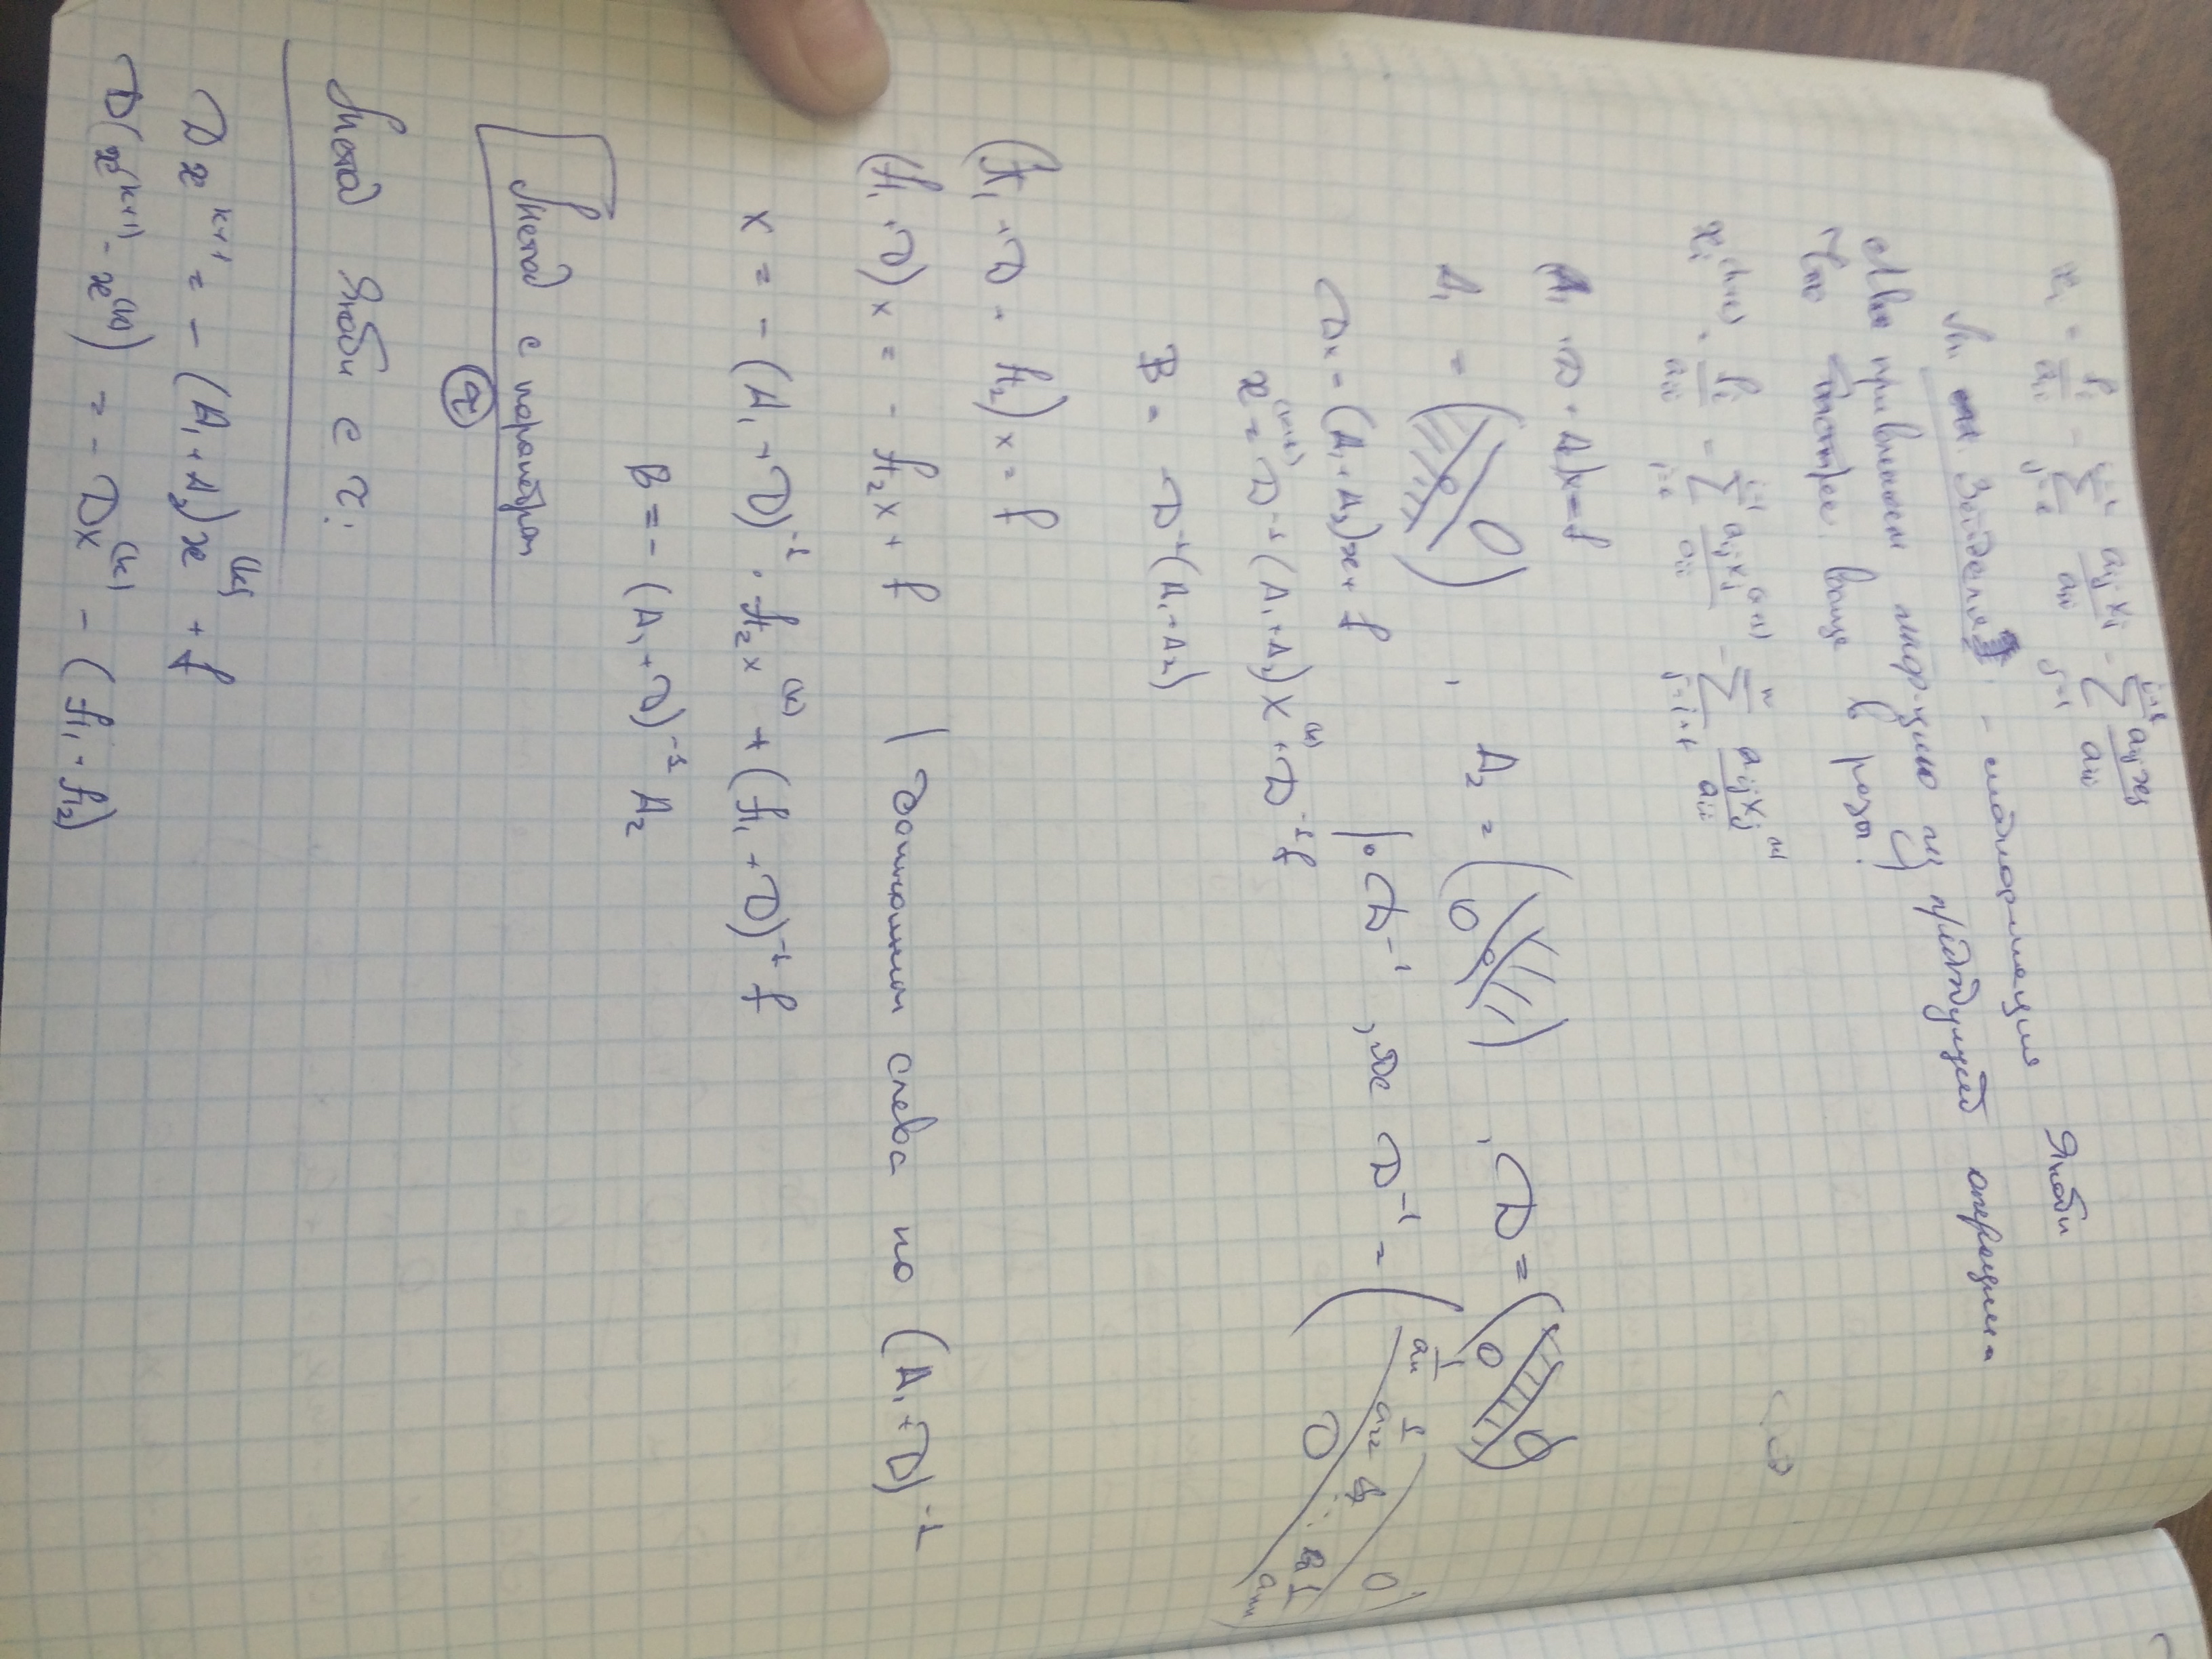 x₁ = f₁/a₁₁ − Σ aᵢⱼxⱼ/aᵢᵢ − Σ aᵢⱼxⱼ/aᵢᵢ
Зейделя - модификация Якоби
Мы применяем инф-цию из предыдущей операции
Что быстрее в разы.
xᵢ⁽ᵏ⁺¹⁾ = fᵢ/aᵢᵢ = Σ aᵢⱼxⱼ⁽ᵏ⁺¹⁾/aᵢᵢ − Σⁿⱼ₌ᵢ₊₁ aᵢⱼxⱼ⁽ᵏ⁾/aᵢᵢ
A₁ + D + A)x = f
A₁ = ( 0 ) , A₂ = ( 0 ) , D = ( 0 0 )
Dx = (A₁ + A₂)x + f | · D⁻¹, D⁻¹ = ( 1/a₁₁ 1/a₂₂ 0 ⋱ 0 1/aₙₙ )
x⁽ᵏ⁺¹⁾ = D⁻¹(A₁ + A₂)x⁽ᵏ⁾ + D⁻¹f
B = D⁻¹(A₁ + A₂)
(A₁ + D + A₂)x = f
(A₁ + D)x = − A₂x + f | домножим слева на (A₁ + D)⁻¹
x = − (A₁ + D)⁻¹ · A₂x⁽ᵏ⁾ + (A₁ + D)⁻¹ f
B = − (A₁ + D)⁻¹ A₂
Метод с параметром
τ
Метод Якоби с τ:
Dxᵏ⁺¹ = − (A₁ + A₂)x⁽ᵏ⁾ + f
D(x⁽ᵏ⁺¹⁾ − x⁽ᵏ⁾) = − Dx⁽ᵏ⁾ − (A₁ + A₂)